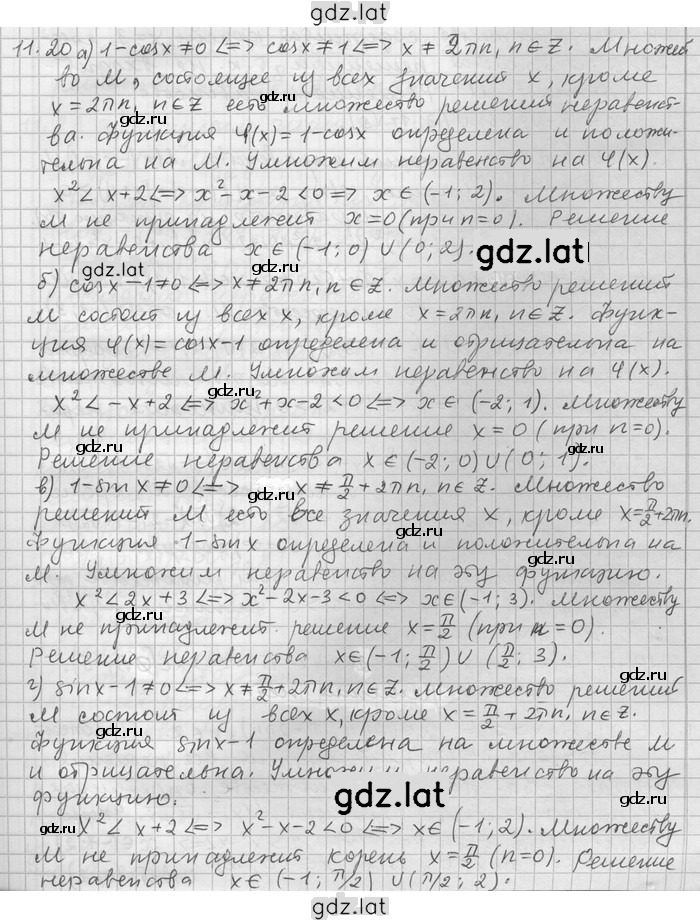 gdz.lat
11.20 а) 1-cosx≠0 <=> cosx≠1 <=> x ≠ 2πn, n∈Z. Множест
во М, состоящее из всех значений x, кроме
x=2πn, n∈Z есть множество решений неравенст-
ва. Функция φ(x)=1-cosx определена и положи-
тельна на М. Умножим неравенство на φ(x).
x²< x+2 <=> x²-x-2<0 => x∈(-1; 2). Множеству
М не принадлежит x=0 (при n=0). Решение
неравенства x∈(-1; 0) ∪ (0; 2).
gdz.lat
б) cosx-1≠0 <=> x≠2πn, n∈Z. Множество решений
М состоит из всех x, кроме x=2πn, n∈Z. Функ-
ция φ(x)=cosx-1 определена и отрицательна на
множестве М. Умножим неравенство на φ(x).
x²<-x+2 <=> x²+x-2<0 <=> x∈(-2; 1). Множеству
М не принадлежит решение x=0 (при n=0).
Решение неравенства x∈(-2; 0)∪(0; 1).
в) 1-sinx≠0 <=> x≠π/2+2πn, n∈Z. Множество
решений М есть все значения x, кроме x=π/2+2πn.
Функция 1-sinx определена и положительна на
М. Умножим неравенство на эту функцию.
x²<2x+3 <=> x²-2x-3<0 <=> x∈(-1; 3). Множеству
М не принадлежит решение x=π/2 (при n=0).
Решение неравенства x∈(-1; π/2) ∪ (π/2; 3).
г) sinx-1≠0 <=> x≠π/2+2πn, n∈Z. Множество решений
М состоит из всех x, кроме x=π/2+2πn, n∈Z.
Функция sinx-1 определена на множестве М
и отрицательна. Умножим неравенство на эту
функцию.
gdz.lat
x²< x+2 <=> x²-x-2<0 <=> x∈(-1; 2). Множеству
М не принадлежит корень x=π/2 (n=0). Решение
неравенства x∈(-1; π/2) ∪(π/2; 2).
gdz.lat